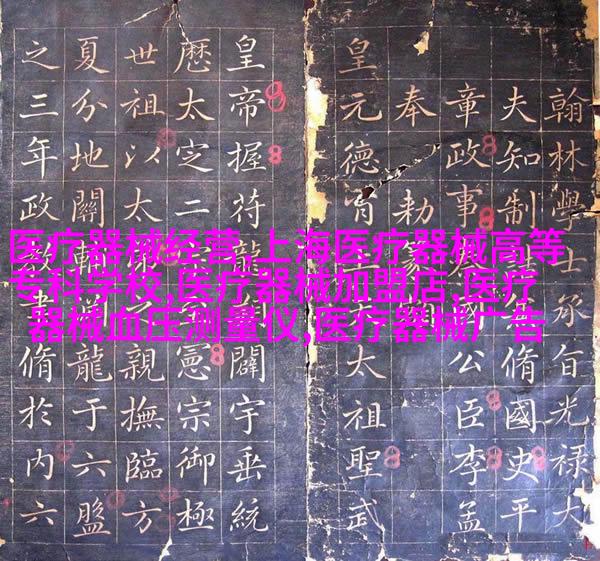 医疗器械经营,上海医疗器械高等
专科学校,医疗器械加盟店,医疗
器械血压测量仪,医疗器械广告
翰林學士承旨光祿大
夫知制脩國史平
章政事公臣李孟
奉勅
皇元德胄太祖聖武
皇帝握符龍闢宇垂統
厯太定二憲宗御極
世祖以太親撫臨方
夏分地關輔龍于六盤
之三年政教脩於內六